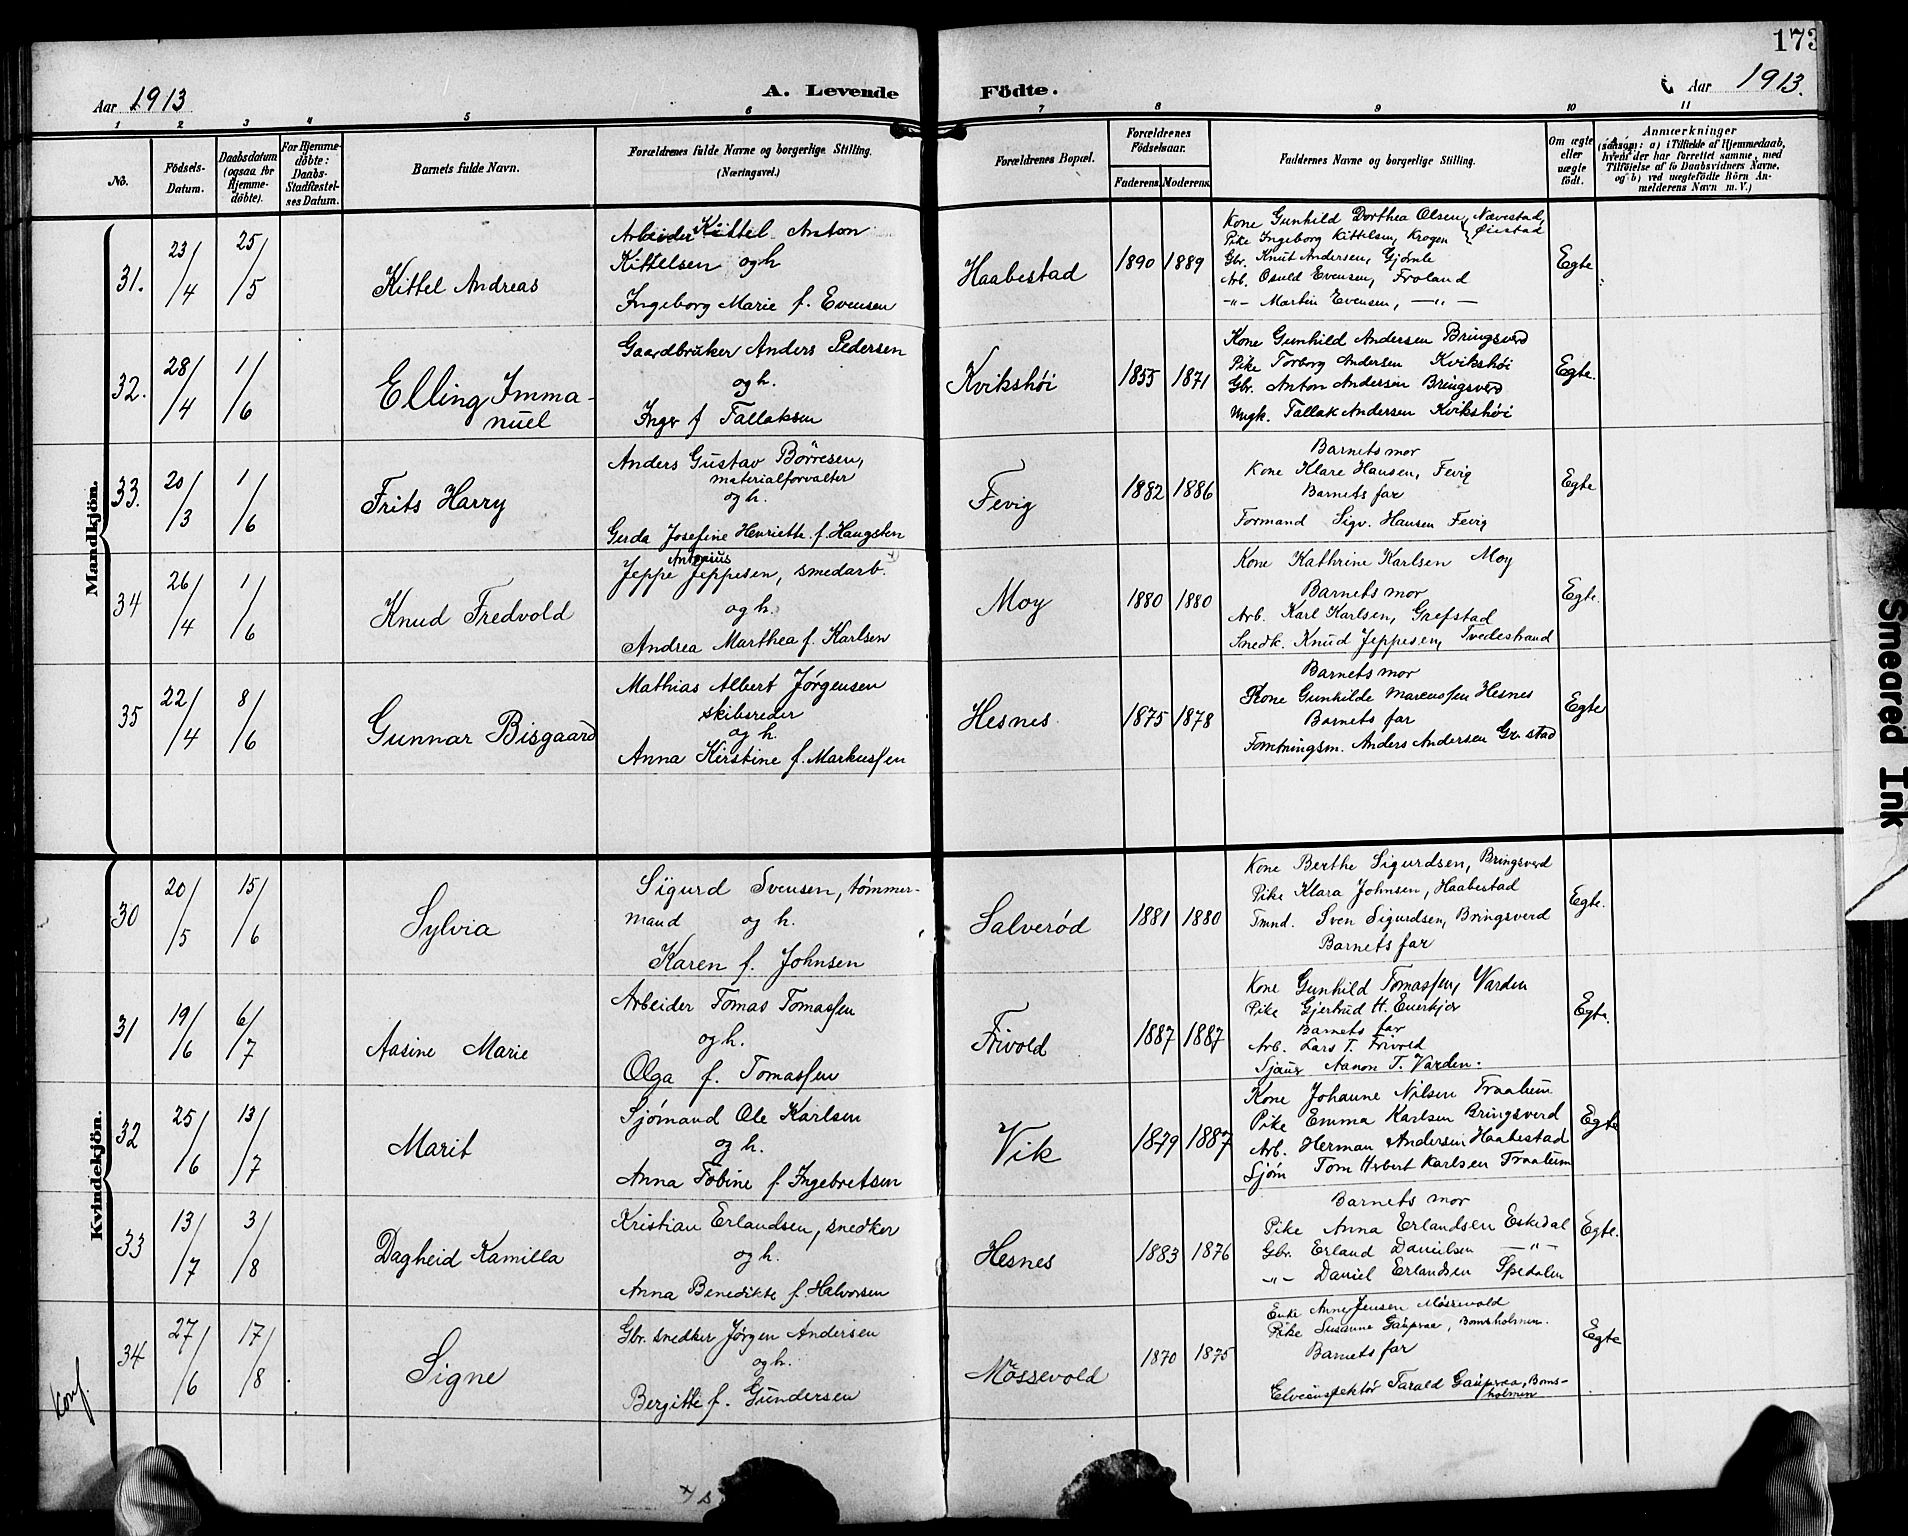 173
Aar 1913
A. Levende Födte.
Aar 1913.
1 2 3 4 5 6 7 8 9 10 11
No.
Födsels-Datum.
Daabsdatum (ogsaa for Hjemme-döbte).
For Hjemme-döbte: Daabs-Stadfæstel-ses Datum.
Barnets fulde Navn.
Forældrenes fulde Navne og borgerlige Stilling.
(Næringsvei.)
Forældrenes Bopæl.
Forældrenes Födselsaar.
Faderens. Moderens.
Faddernes Navne og borgerlige Stilling.
Om ægte eller uægte födt.
Anmærkninger
(saasom: a) i Tilfælde af Hjemmedaab,
hvem der har forrettet samme, med
Tilföielse af to Daabsvidners Navne,
og b) ved uægtefödte Börn An-
melderens Navn m. V.)
Mandkjön.
31. 23/4 25/5 Kittel Andreas
Arbeider Kittel Anton
Kittelsen og h
Ingeborg Marie f. Evensen
Haabestad 1890 1889
Kone Gunhild Dorthea Olsen, Nævestad,
Pike Ingeborg Kittelsen, Krogen Øiestad
Gbr. Knut Andersen, Gjømle
Arb. Osuld Evensen, Froland
-"- Martin Evensen, -"-
Egte
32. 28/4 1/6 Elling Imma-
nuel
Gaardbruker Anders Pedersen
og h.
Inger f Tallaksen
Kvikshöi 1855 1871
Kone Gunhild Andersen Bringsverd
Pike Torborg Andersen Kvikshöi
Gbr. Anton Andersen Bringsverd
Ungk. Tallak Andersen Kvikshöi
Egte.
33. 20/3 1/6 Frits Harry
Anders Gustav Börresen,
materialforvalter
og h.
Gerda Josefine Henriette f. Haugsten
Fevig 1882 1886
Barnets mor
Kone Klare Hansen, Fevig
Barnets far
Formand Sigv. Hansen Fevig
Egte
34 26/4 1/6 Knud Fredvold
Antonius
Jeppe Jeppesen, smedarb.
og h.
Andrea Marthea f. Karlsen
Moy 1880 1880
Kone Kathrine Karlsen Moy
Barnets mor
Arb. Karl Karlsen, Grefstad
Snedk. Knud Jeppesen, Tvedestrand
Egte.
35 22/4 8/6 Gunnar Bisgaard
Mathias Albert Jørgensen
skibsreder
og h.
Anna Kirstine f. Markussen
Hesnes 1875 1878
Barnets mor
Kone Gunhilde Marcussen Hesnes
Barnets far
Anders Andersen
Egte
Kvindekjön.
30 20/5 15/6 Sylvia
Sigurd Svensen, tømmer-
mand og h.
Karen f. Johnsen
Salverød 1881 1880
Kone Berthe Sigurdsen, Bringsverd
Pike Klara Johnsen, Haabestad
Tmnd. Sven Sigurdsen, Bringsverd
Barnets far
Egte.
31 19/6 6/7 Aasine Marie
Arbeider Tomas Tomassen
og h.
Olga f. Tomassen
Frivold 1887 1887
Kone Gunhild Tomassen, Varden
Pike Gjertrud H.
Barnets far
Arb. Lars T. Frivold
Aanon T. Varden.
Egte.
32 25/6 13/7 Marit
Sjømand Ole Karlsen
og h.
Anna Tobine f Ingebretsen
Vik 1879 1887
Kone Johanne Nilsen
Pike Emma Karlsen Bringsverd
Arb. Herman Andersen Haabestad
Sjøm Tom Karlsen
Egte
33 13/7 3/8 Dagheid Kamilla
Kristian Erlandsen, snedker
og h.
Anna Benedikte f. Halvorsen
Hesnes 1883 1876
Barnets mor
Pike Anna Erlandsen Eskedal
Gbr. Erland Danielsen -"-
-"- Daniel Erlandsen
Egte.
Konf.
34 27/6 17/8 Signe
Gbr. snedker Jørgen Andersen
og h.
Bergitte f. Gundersen
Mössevold 1870 1875
Enke Anne Jensen Mössevold
Pike Susanne Gaupraa, Bomsholmen.
Barnets far
Elveinspektør Tarald Gaupraa, Boms-
holmen
Egte
Smeared Ink